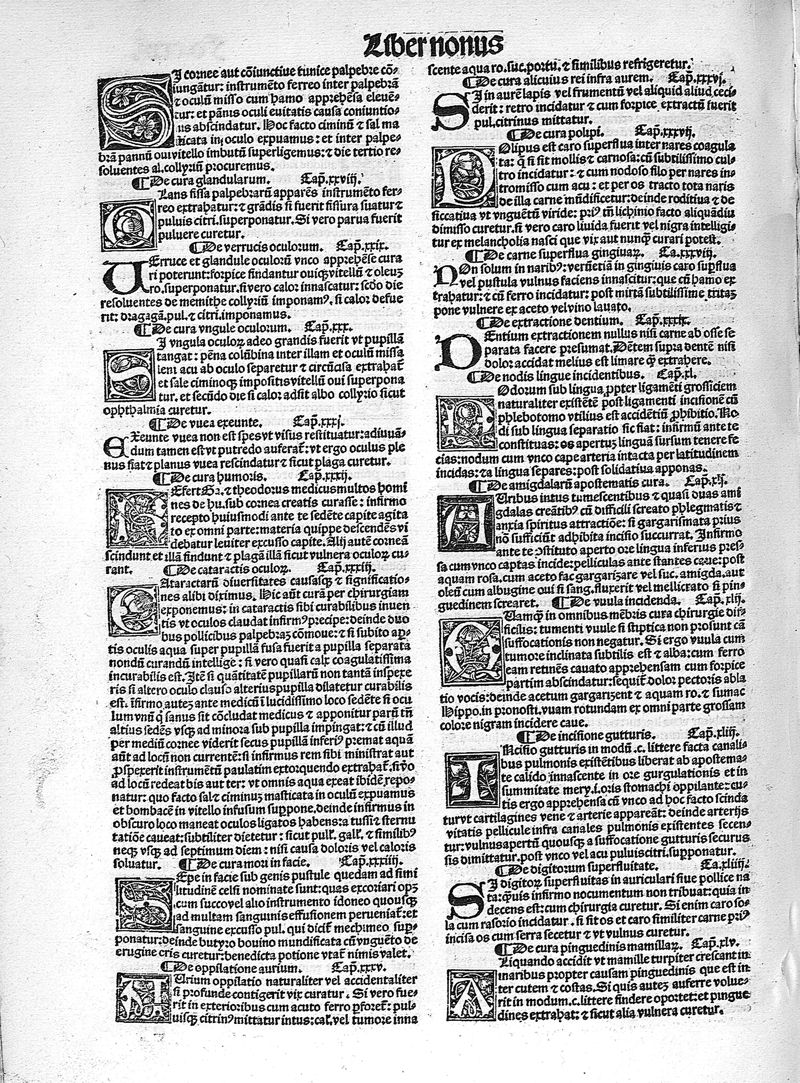 Liber nonus
SI cornee aut cõiunctiue tunice palpebre cõ-
iungãtur: instrumẽto ferreo inter palpebrã
& oculũ misso cum hamo apprehẽsa eleue-
tur: et pãnus oculi euitatis causa coniunctio-
nis abscindatur. Hoc facto ciminũ & sal ma
sticata in oculo expuamus: et inter palpe-
brã pannũ oui vitello imbutũ superligemus: & die tertio re-
soluentes al. collyriũ procuremus.
¶De cura glandularum. Cap̃.xxviij.
QLans fissa palpebrarũ apparẽs instrumẽto fer-
reo extrahatur: & grãdis si fuerit fissura suatur &
puluis citri. superponatur. Si vero parua fuerit
puluere curetur.
¶De verrucis oculorum. Cap̃.xxix.
VErruce et glandule oculorũ vnco apprehẽse cura
ri poterunt: forpice findantur ouiqʒ vitellũ & oleuʒ
ro. superponatur. si vero calor innascatur: scd̃o die
resoluentes de memithe collyriũ imponamꝰ. si calor defue
rit: dragagã. pul. & citri. imponamus.
¶De cura vngule oculorum. Cap̃.xxx.
SI vngula oculoꝝ adeo grandis fuerit vt pupillã
tangat: pẽna colũbina inter illam et oculũ missa
vel acu ab oculo separetur & circũcisa extrahat̃
et sale ciminoqʒ impositis vitellũ oui superpona
tur. et secũdo die si calor adsit albo collyrio sicut
ophthalmia curetur.
¶De vuea exeunte. Cap̃.xxxj.
EXeunte vuea non est spes vt visus restituatur: adiuuã-
dum tamen est vt putredo auferat̃: vt ergo oculus ple
nus fiat & planus vuea rescindatur & sicut plaga curetur.
¶De cura humoris. Cap̃.xxxij.
REfert Ga. & theodorus medicus multos homi
nes de hu. sub cornea creatis curasse: infirmo
recepto huiusmodi ante te sedẽte capite agita
to ex omni parte: materia quippe descendẽs vi
debatur leuiter excusso capite. Alij autẽ corneã
scindunt et illã findunt & plagã illã sicut vulnera oculoꝝ cu-
rant. ¶De cataractis oculoꝝ. Cap̃.xxxiij.
CAtaractarũ diuersitates causasqʒ & significatio-
nes alibi diximus. Hic aũt cura per chirurgiam
exponemus: in cataractis sibi curabilibus inuen
tis vt oculos claudat infirmꝰ precipe: deinde duo
bus pollicibus palpebras cõmoue: & si subito aꝑ-
tis oculis aqua super pupillã fusa fuerit a pupilla separata
nondũ curandũ intellige: si vero quasi calx coagulatissima
incurabilis est. Itẽ si quãtitatẽ pupillarũ non tantã inspexe
ris si altero oculo clauso alterius pupilla dilatetur curabilis
est. infirmo autez ante medicũ ĩ lucidissimo loco sedẽte si ocu
lum vnũ q̃ sanus sit cõcludat medicus & apponitur parũ tñ
altius sedẽs vsqʒ ad minora sub pupilla impingat: & cũ illud
per mediũ cornee viderit secus pupillã inferiꝰ premat aquã
aũt ad locũ non currentẽ: si infirmus rem sibi ministrat aut
ꝓspexerit instrumẽtũ paulatim extorquendo extrahat̃. si vo
ad locũ redeat bis aut ter: vt omnis aqua exeat ibidẽ repo-
natur: quo facto sal & ciminuʒ masticata in oculũ expuamus
et bombacẽ in vitello infusum suppone. deinde infirmus in
obscuro loco maneat oculos ligatos habens: a tussi & sternu
tatiõe caueat: subtiliter dietetur: sicut pull. gall. & similibꝰ
neqʒ vsqʒ ad septimum diem: nisi causa doloris vel caloris
soluatur. ¶De cura mori in facie. Cap̃.xxxiiij.
SEpe in facie sub genis pustule quedam ad simi
litudinẽ celsi nominate sunt: quas excoriari opʒ
cum succo vel alio instrumento idoneo quousqʒ
ad multam sanguinis effusionem perueniat̃: et
sanguine excusso pul. qui dicit̃ mechimeo suꝑ-
ponatur: deinde butyro bouino mundificata cũ vnguẽto de
erugine eris curetur: benedicta potione vtat̃ nimis valet.
¶De oppilatione aurium. Cap̃.xxxv.
AUrium oppilatio naturaliter vel accidentaliter
si profunde contigerit vix curatur. Si vero fue-
rit in exterioribus cum acuto ferro ꝑforet̃: pul-
uisqʒ citrinꝰ mittatur intus: cal. vel tumore inna
scente aqua ro. suc. portu. & similibus refrigeretur.
¶De cura alicuius rei infra aurem. Cap̃.xxxvj.
SI in aurẽ lapis vel frumentũ vel aliquid aliud ceci-
derit: retro incidatur & cum forpice extractũ fuerit
pul. citrinus mittatur.
¶De cura polypi. Cap̃.xxxvij.
POlipus est caro superflua inter nares coagula
ta: q̃ si sit mollis & carnosa: cũ subtilissimo cul-
tro incidatur: & cum nodoso filo per nares in-
tromisso cum acu: et per os tracto tota naris
de illa carne mũdificetur: deinde roditiua & de
siccatiua vt vnguẽtũ viride: priꝰ cũ lichinio facto aliquãdiu
dimisso curetur. si vero caro liuida fuerit vel nigra intelligi
tur ex melancholia nasci que vix aut nunq̃ curari potest.
¶De carne superflua gingiuaꝝ. Ca.xxxviij.
NOn solum in naribꝰ: verũetiã in gingiuis caro suꝑflua
vel pustula vulnus faciens innascitur: que cũ hamo ex
trahatur: & cũ ferro incidatur: post mirtã subtilissime tritaʒ
pone vulnere ex aceto vel vino lauato.
¶De extractione dentium. Cap̃.xxxix.
DEntium extractionem nullus nisi carne ab osse se
parata facere presumat. Dẽtem supra dentẽ nisi
dolor accidat melius est limare q̃ extrahere.
¶De nodis lingue incidentibus. Cap̃.xl.
NOdorum sub lingua ꝓpter ligamẽti grossiciem
naturaliter existẽtẽ post ligamenti incisionẽ cũ
phlebotomo vtilius est accidẽtiũ ꝓhibitio. No
di sub lingua separatio sic fiat: infirmũ ante te
constituas: os apertuʒ linguã sursum tenere fe
cias: nodum cum vnco cape arteria intacta per latitudinem
incidas: & a lingua separes: post solidatiua apponas.
¶De amigdalarũ apostematis cura. Cap̃.xlj.
AUribus intus tumescentibus & quasi duas ami
gdalas creãtibꝰ cũ difficili screato phlegmatis &
anxia spiritus attractiõe: si gargarismata prius
nõ sufficiũt adhibita incisio succurrat. Infirmo
ante te ꝯstituto aperto ore lingua inferius pres-
sa cum vnco captas incide: pelliculas ante stantes caue: post
aquam rosa. cum aceto fac gargarizare vel suc. amigda. aut
oleũ cum albugine oui si sang. fluxerit vel mellicrato si pin-
guedinem screaret. ¶De vuula incidenda. Cap̃.xlij.
QUamqʒ in omnibus mẽbris cura chirurgie dif-
ficilis: tumenti vuule si stiptica non prosunt cã
suffocationis non negatur. Si ergo vuula cum
tumore inclinata subtilis est & alba: cum ferro
eam retinẽs cauato apprehensam cum forpice
partim abscindatur: sequit̃ dolor pectoris abla
tio vocis: deinde acetum gargarizent & aquam ro. & sumac
Hippo. in pronosti. vuam rotundam ex omni parte grossam
colore nigram incidere caue.
¶De incisione gutturis. Cap̃.xliij.
INcisio gutturis in modũ .c. littere facta canali-
bus pulmonis existẽtibus liberat ab apostema-
te calido innascente in ore gurgulationis et in
summitate mery. i. oris stomachi oppilante: cu-
tis ergo apprehensa cũ vnco ad hoc facto scinda
tur vt cartilagines vene & arterie appareãt: deinde arterijs
vitatis pellicule infra canales pulmonis existentes secen-
tur: vulnus apertũ quousqʒ a suffocatione gutturis securus
sis dimittatur. post vnco vel acu puluis citri. supponatur.
¶De digitorum superfluitate. Ca.xliiij.
SI digitoꝝ superfluitas in auriculari siue pollice na
ta: quis infirmo nocumentum non tribuat: quia in
decens est: cum chirurgia curetur. Si enim caro so-
la cum rasorio incidatur. si sit os et caro similiter carne priꝰ
incisa os cum serra secetur & vt vulnus curetur.
¶De cura pinguedinis mamillaꝝ. Cap̃.xlv.
ALiquando accidit vt mamille turpiter crescant in
maribus propter causam pinguedinis que est in-
ter cutem & costas. Si quis autez auferre volue-
rit in modum .c. littere findere oportet: et pingue
dines extrahat̃: & sicut alia vulnera curetur.